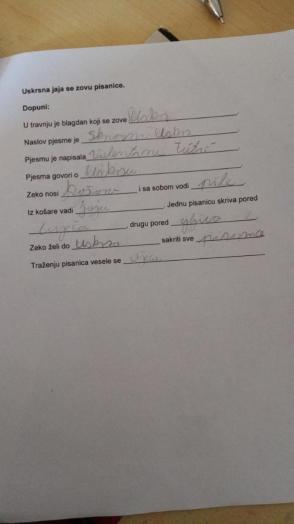 Uskrsna jaja se zovu pisanice.
Dopuni:
U travnju je blagdan koji se zove Uskrs.
Naslov pjesme je Skromni Uskrs.
Pjesmu je napisala.
Pjesma govori o Uskrsu.
Zeko nosi košaru i sa sobom vodi pile.
Iz košare vadi jaja. Jednu pisanicu skriva pored
, drugu pored.
Zeko želi do Uskrsa sakriti sve pisanice
Traženju pisanica vesele se.